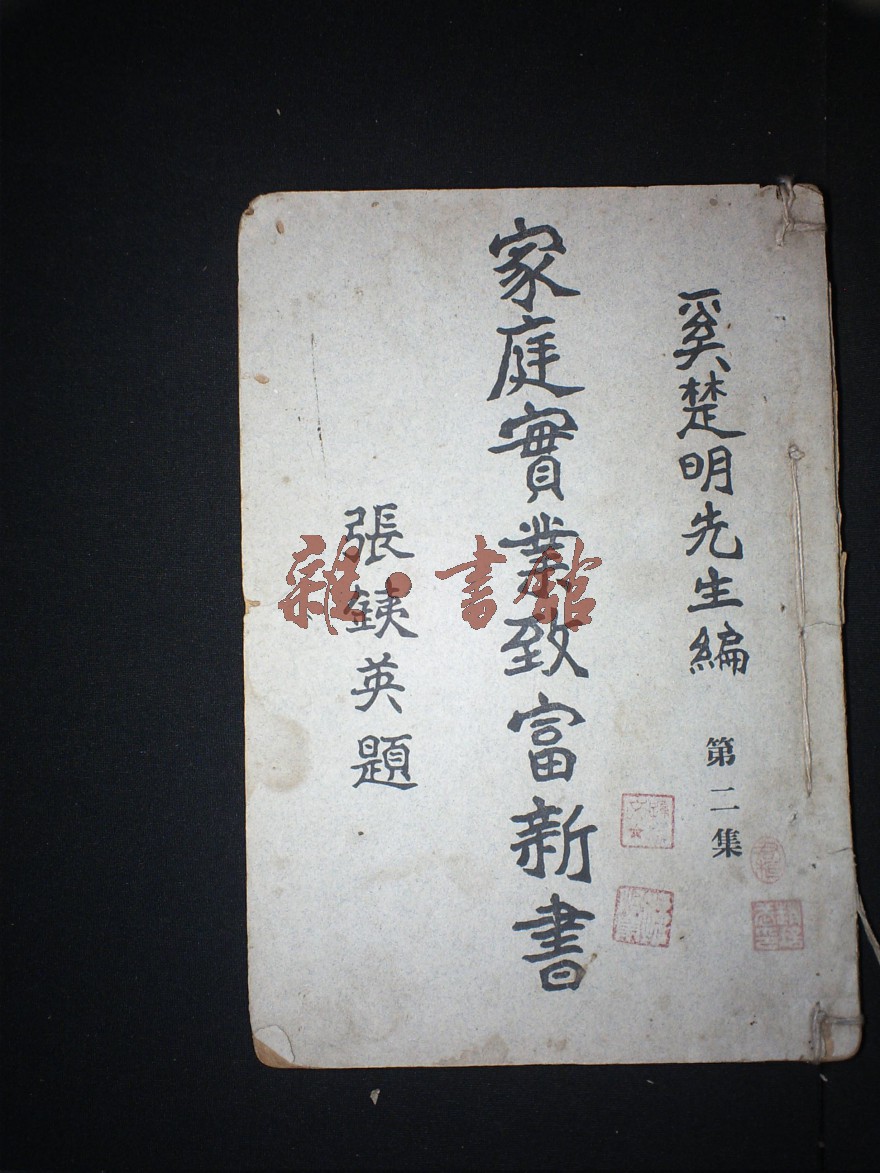 奚楚明先生編
第二集
家庭實業致富新書
張銕英題
雜·書館